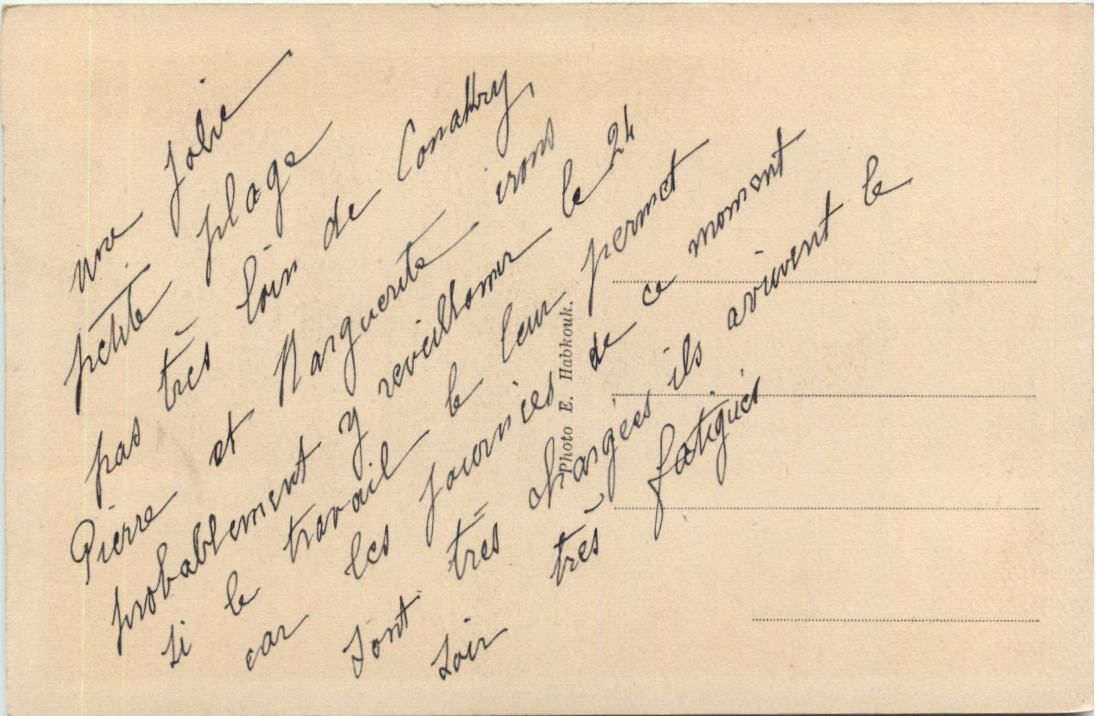 une jolie
petite plage
pas très loin de Conakry,
Pierre et Marguerite irons
probablement y reveillonner le 24
si le travail le leur permet
car les journées de ce moment
sont très chargées ils arrivent le
soir très fatigués
Photo E. Habkouk.